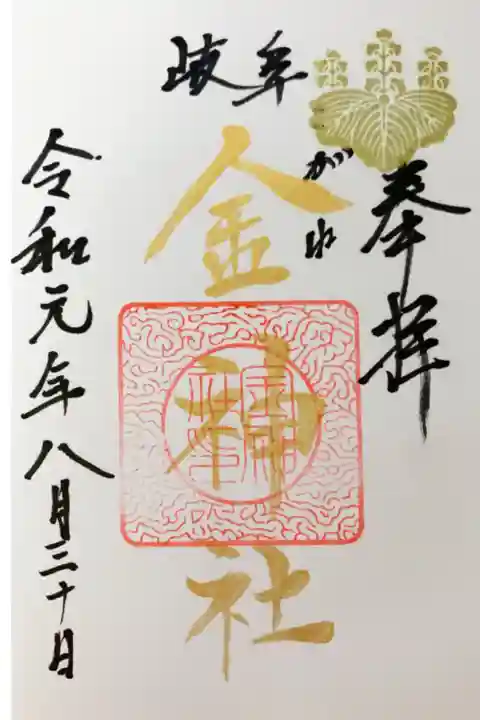 奉拝
岐阜
こがね
金神社
金神社印
令和元年八月三十日